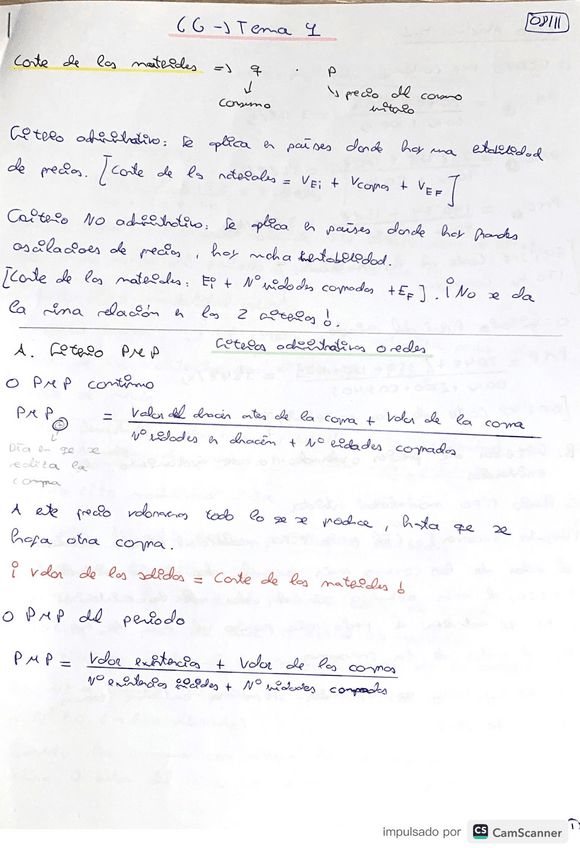 CG -> Tema 1
08/11
Coste de los materiales => q . P
consumo
precio del consumo
unitario
Criterio administrativo: Se aplica en países donde hay una estabilidad
de precios. [Coste de los materiales = VEi + Vcompras + VEF]
Criterio NO administrativo: Se aplica en países donde hay grandes
oscilaciones de precios, hay mucha
[Coste de los materiales: Ei + Nº unidades compradas + EF]. ¡No se da
la misma relación en los 2 criterios!.
A. Criterio PMP
Criterios administrativos o reales
O PMP continuo
PMP = Valor del almacén antes de la compra + Valor de la compra
Nº unidades en almacén + Nº unidades compradas
Día en que se
realiza la
compra
A este precio valoramos todo lo que se produce, hasta que se
haga otra compra.
¡Valor de las salidas = Coste de los materiales!
O PMP del periodo
PMP = Valor existencias + Valor de las compras
Nº existencias iniciales + Nº unidades compradas
impulsado por CS CamScanner